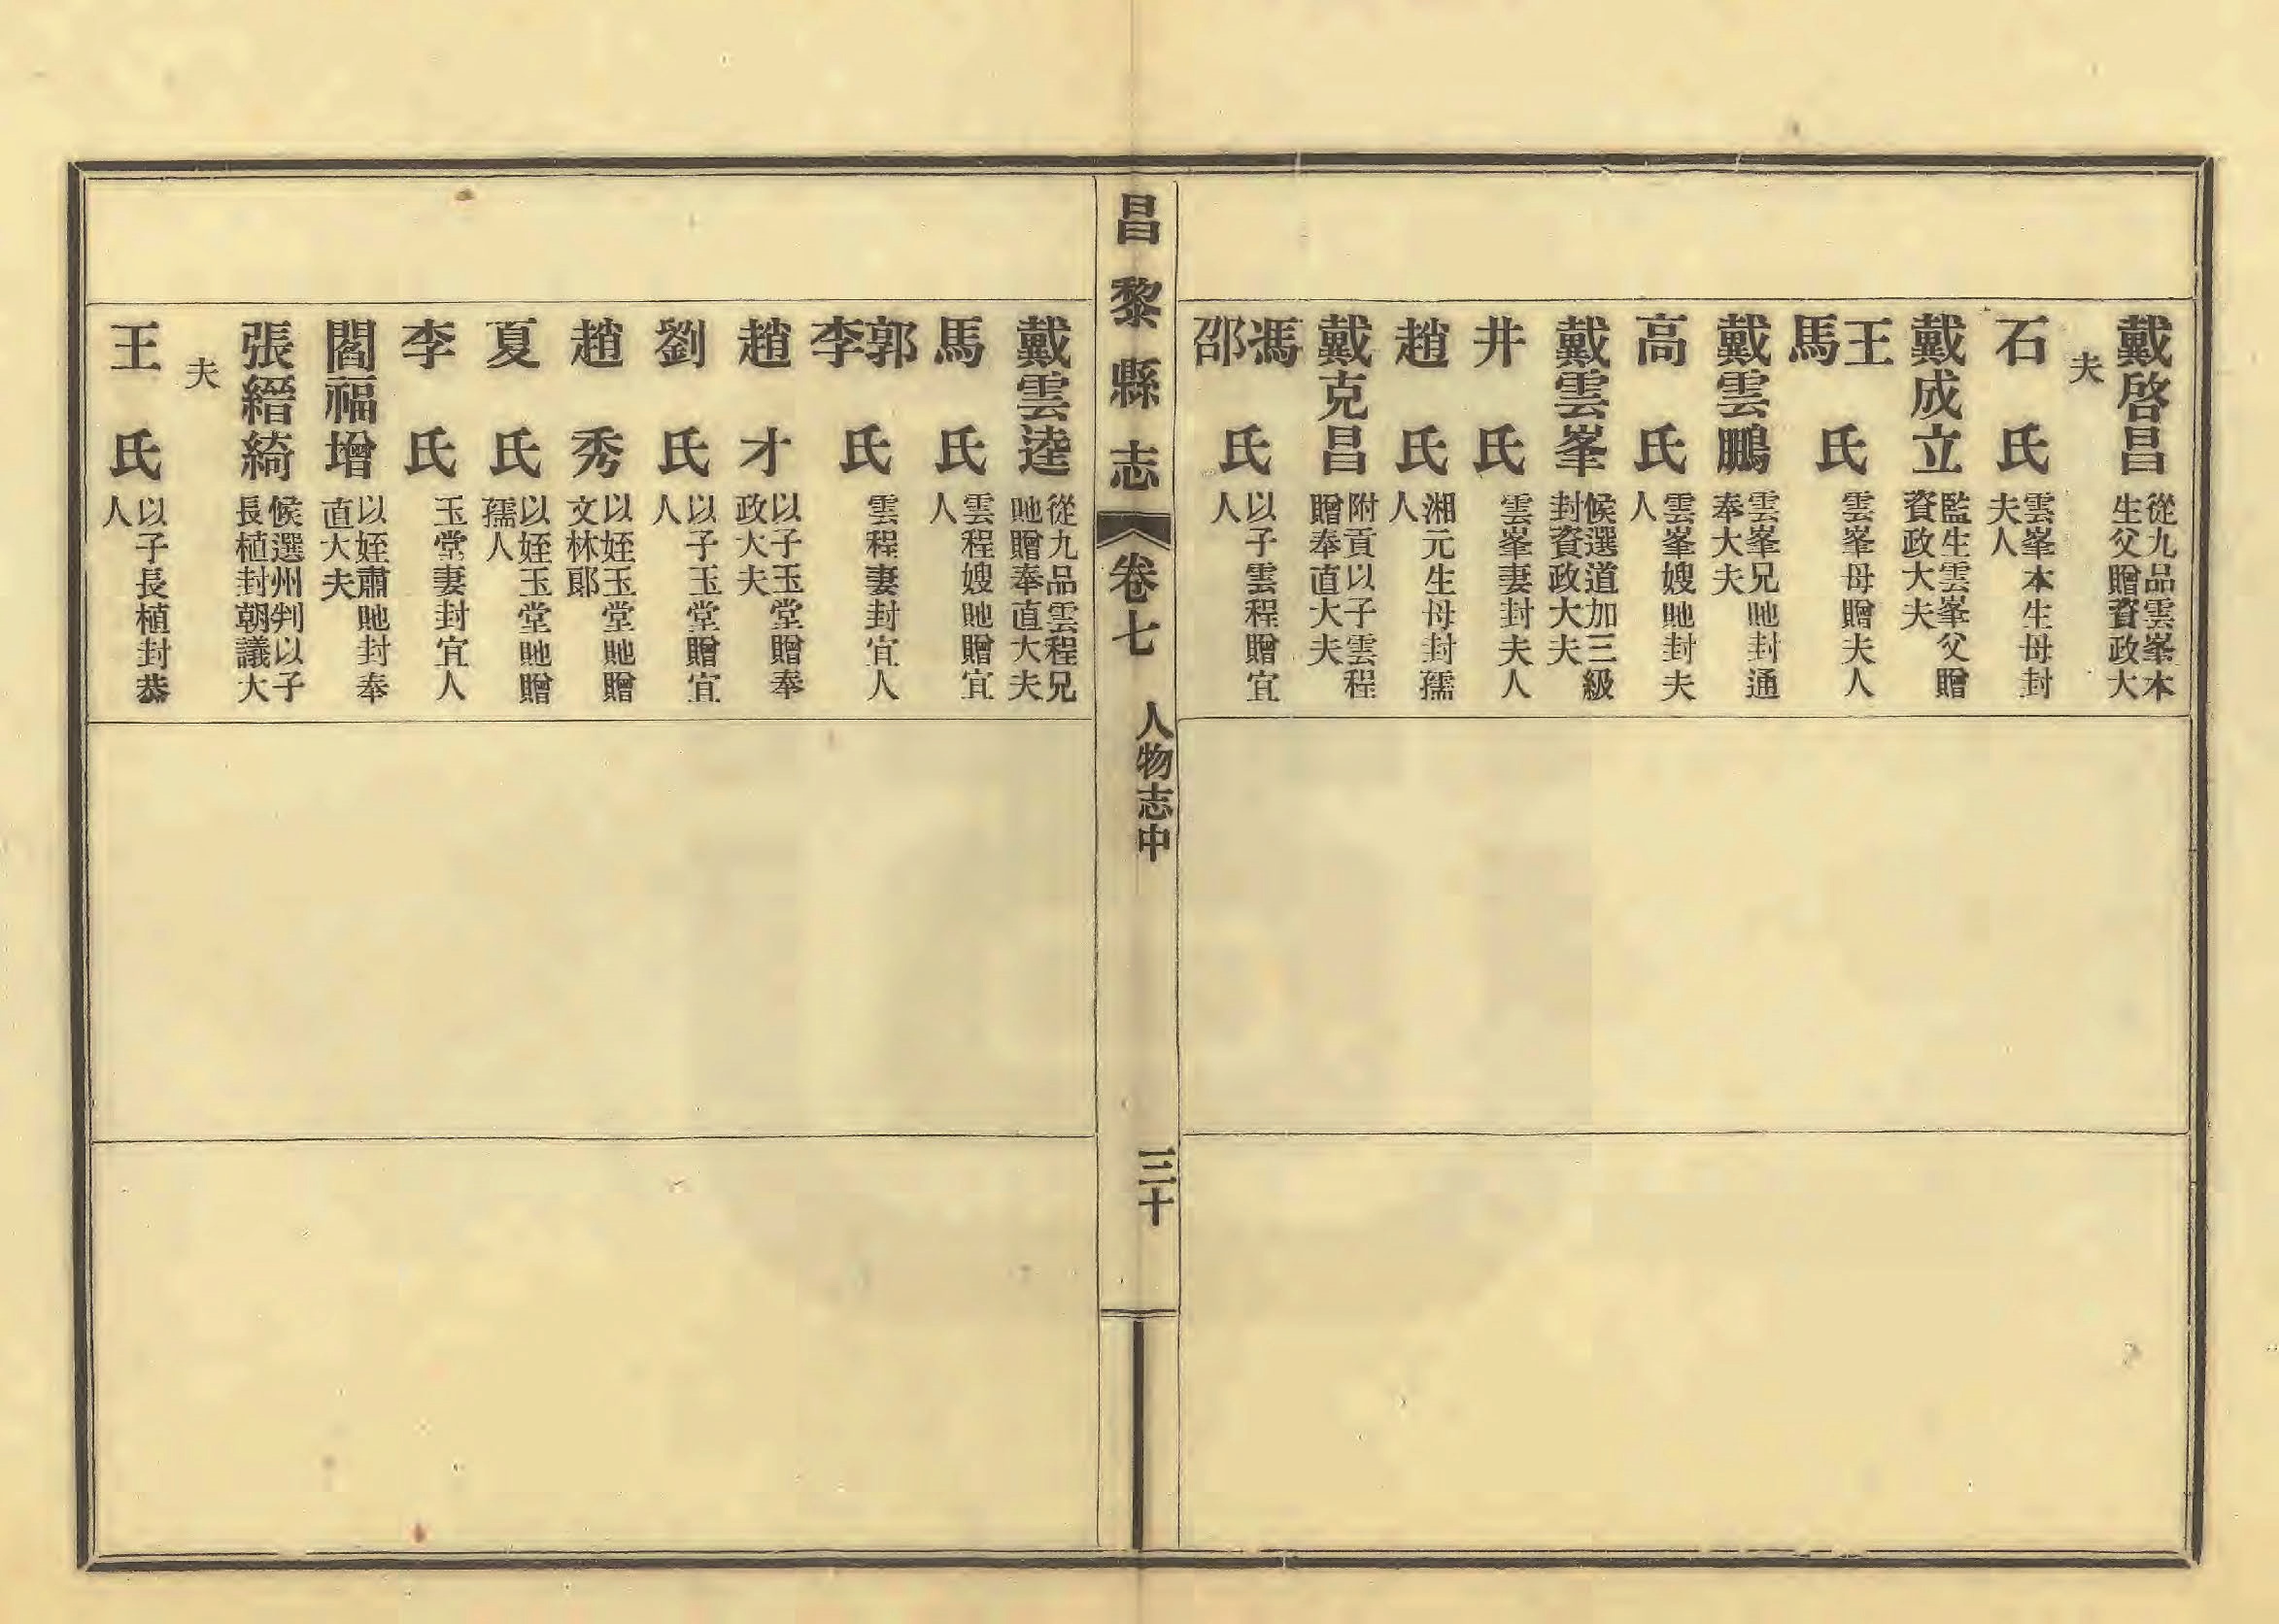 戴啓昌 從九品雲峯本生父贈資政大
夫
石氏 雲峯本生母封夫人
戴成立 監生雲峯父贈資政大夫
王馬氏 雲峯母贈夫人
戴雲鵬 雲峯兄貤封通奉大夫
高氏 雲峯嫂貤封夫人
戴雲峯 候選道加三級封資政大夫
井氏 雲峯妻封夫人
趙氏 湘元生母封孺人
戴克昌 附貢以子雲程贈奉直大夫
馮邵氏 以子雲程贈宜人
昌黎縣志 卷七 人物志中 三十
戴雲逵 從九品雲程兄貤贈奉直大夫
馬氏 雲程嫂貤贈宜人
郭李氏 雲程妻封宜人
趙才 以子玉堂贈奉政大夫
劉氏 以子玉堂贈宜人
趙秀 以姪玉堂貤贈文林郎
夏氏 以姪玉堂貤贈孺人
李氏 玉堂妻封宜人
閻福增 以姪肅貤封奉直大夫
張縉綺 候選州判以子長植封朝議大
夫
王氏 以子長植封恭人